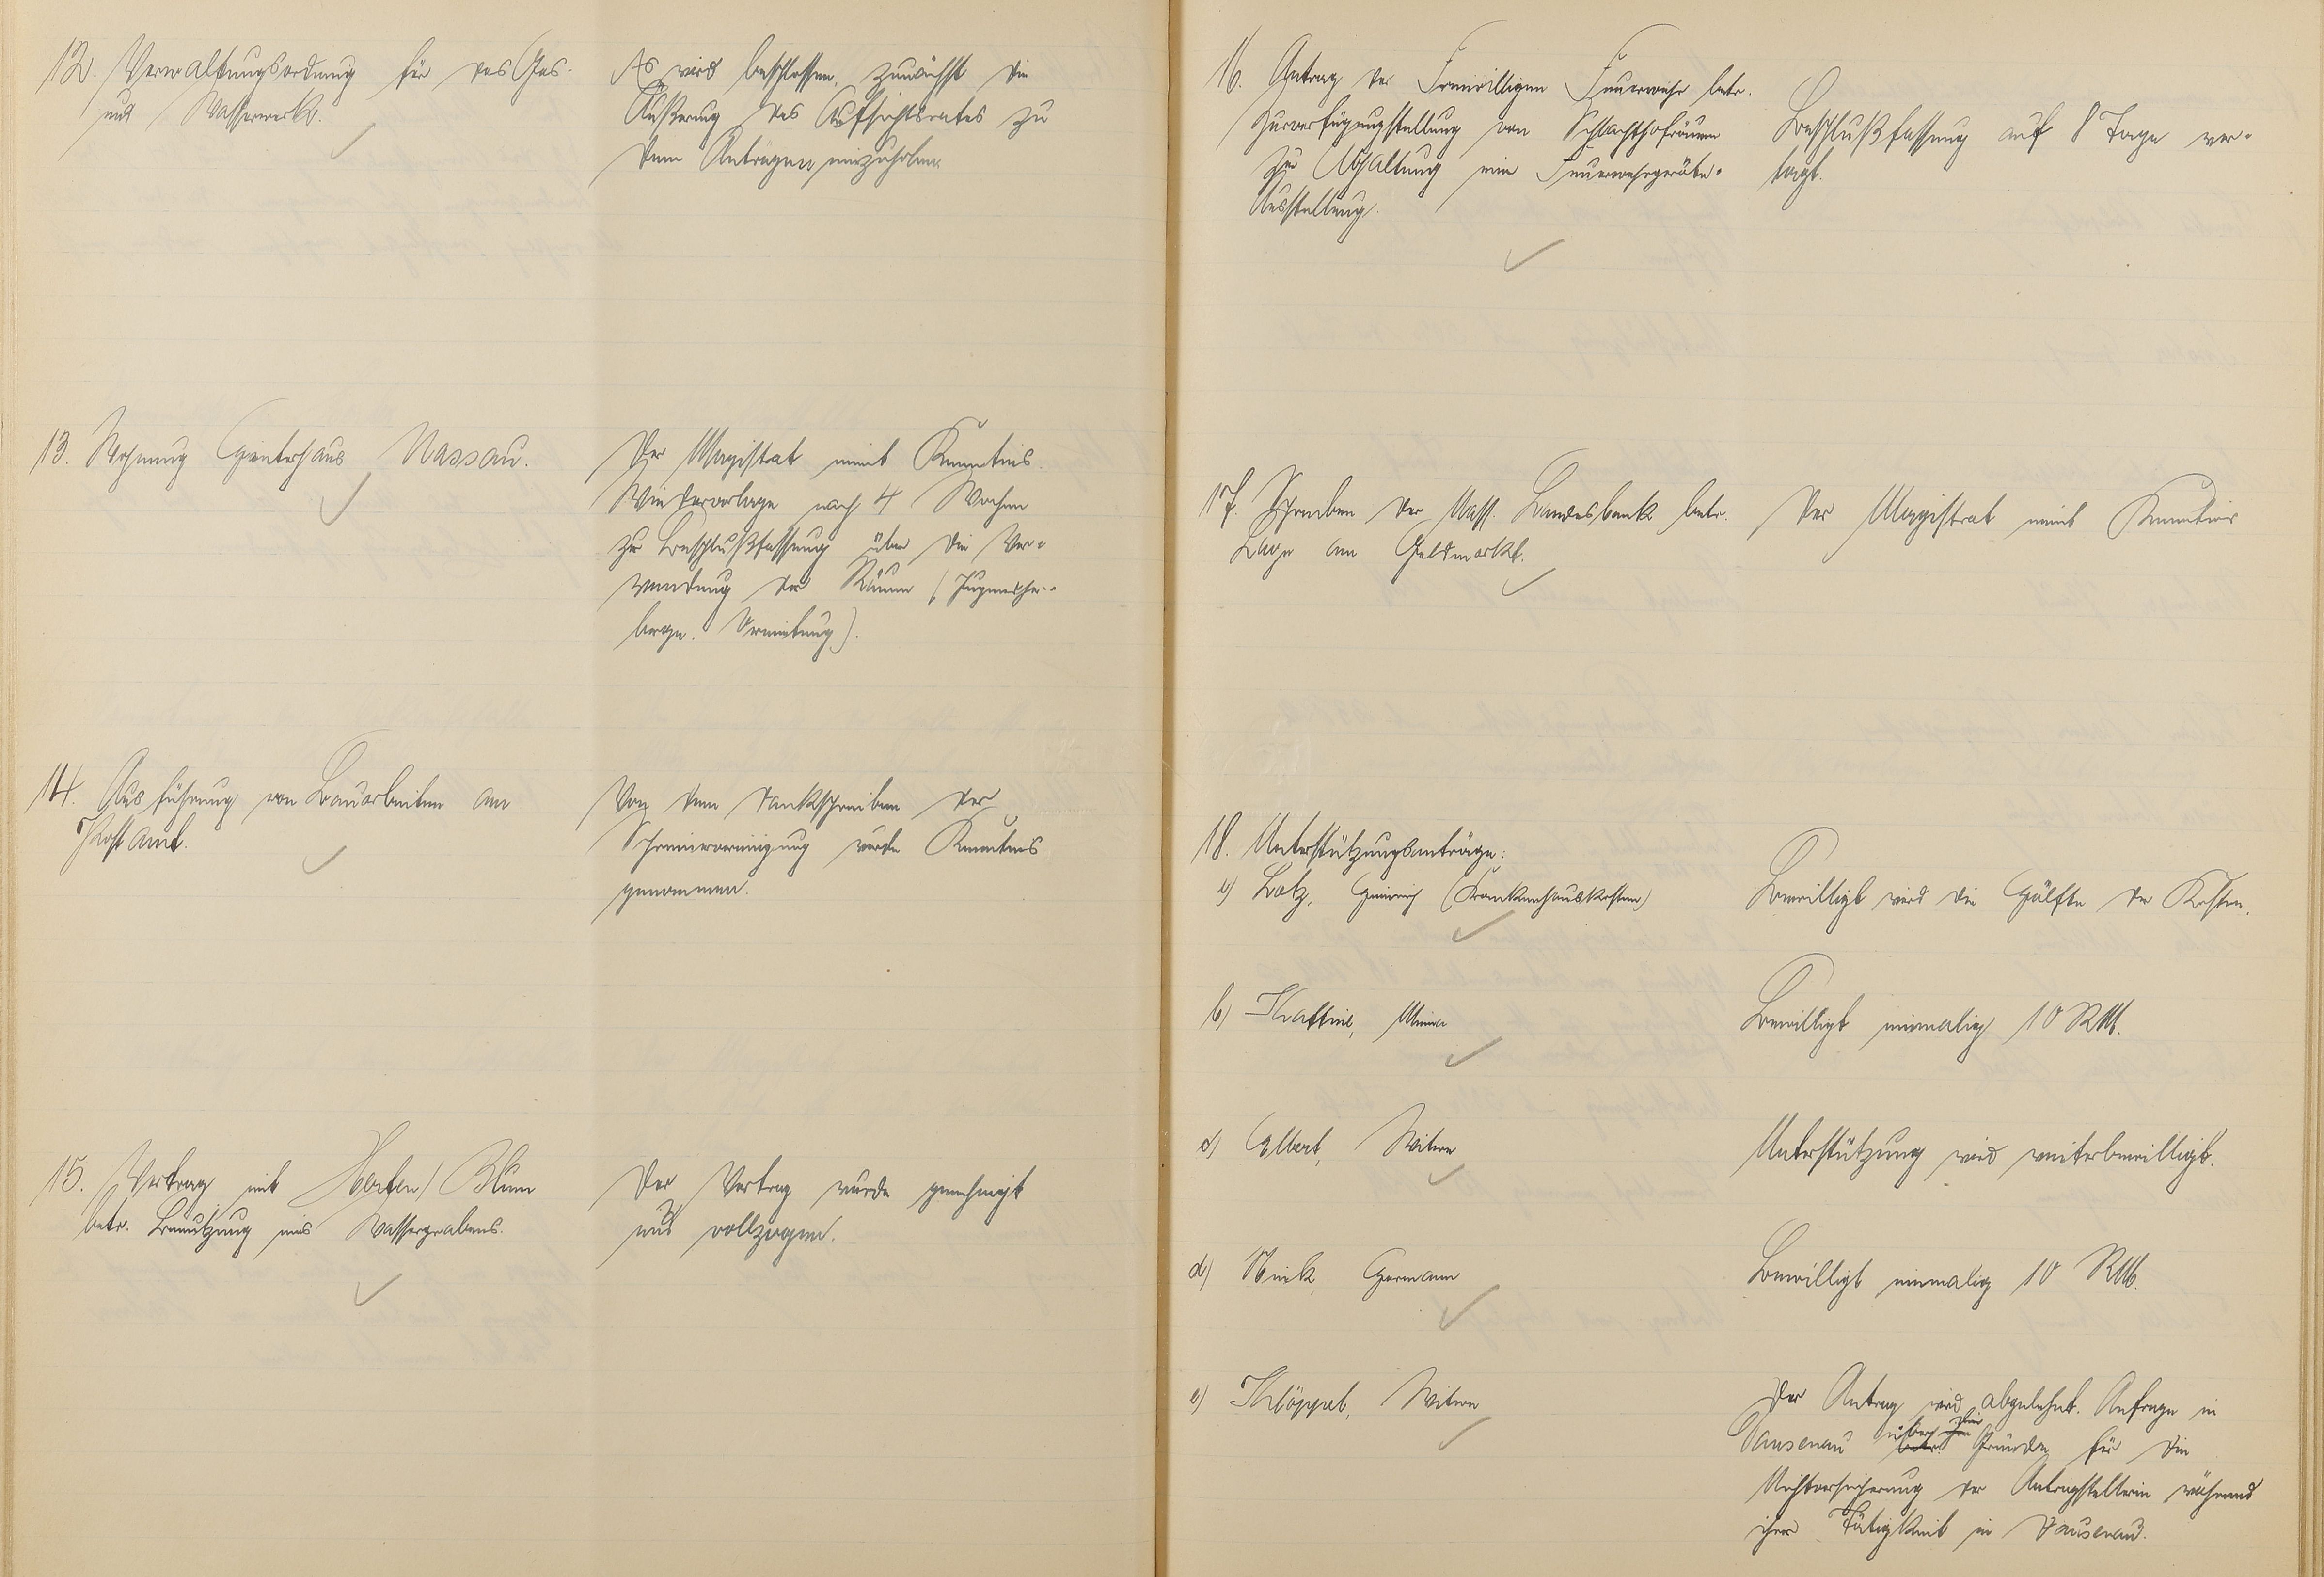 12. Verwaltungsordnung für das Gas-
und Wasserwerk.
Es wird beschlossen, zunächst die
Äußerung des Aufsichtsrates zu
den Anträgen einzuholen.
13. Wohnung Hinterhaus Nassau.
Der Magistrat nimmt Kenntnis.
Wiedervorlage nach 4 Wochen
zur Beschlußfassung über die Ver-
wendung der Räume (Jugendher-
berge. Vermietung).
14. Ausführung von Bauarbeiten am
Postamt.
Von dem Dankschreiben der
Schreinervereinigung wurde Kenntnis
genommen.
15. Vertrag mit Blum
betr. Benutzung eines Wassergrabens.
Der Vertrag wurde genehmigt
und vollzogen.
16. Antrag der Freiwilligen Feuerwehr betr.
Zurverfügungstellung von Schlachthofräumen
zur Abhaltung einer Feuerwehrgeräte-
Ausstellung.
Beschlußfassung auf 8 Tage ver-
tagt.
17. Schreiben der Nass. Landesbank betr.
Lage am Geldmarkt.
Der Magistrat nimmt Kenntnis
18. Unterstützungsanträge:
a) Lotz, Heinrich (Krankenhauskosten)
Bewilligt wird die Hälfte der Kosten.
b) Minna
Bewilligt einmalig 10 RM.
c) Albert, Witwe
Unterstützung wird weiterbewilligt.
d) Hermann
Bewilligt einmalig 10 RM.
e) Klöppel, Witwe
Der Antrag wird abgelehnt. Anfrage in
Dausenau über die Gründe für die
Nichtversicherung der Antragstellerin während
ihrer Tätigkeit in Dausenau.